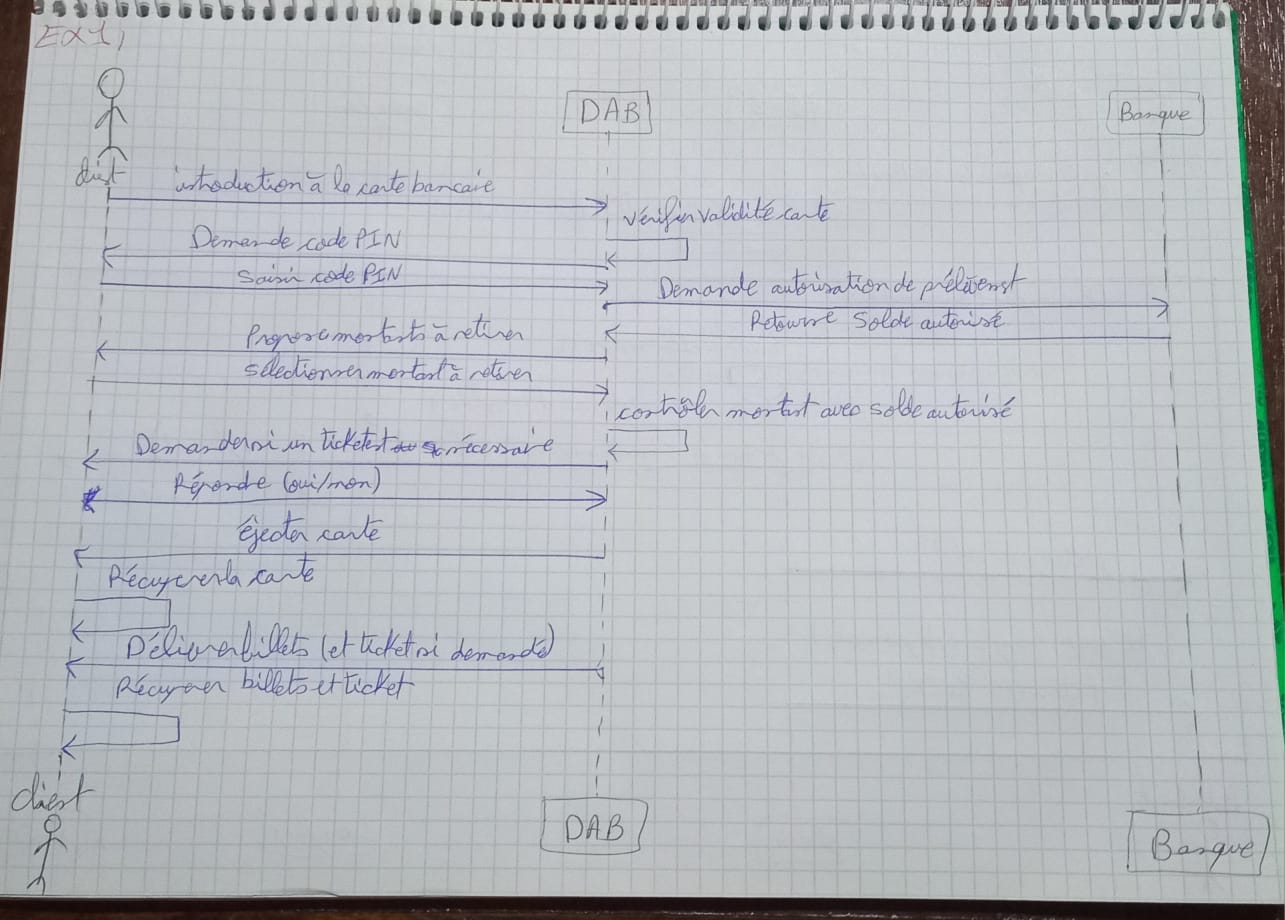 Ex1,
DAB
Banque
client
introduction à la carte bancaire
vérifier validité carte
Demande code PIN
Saisir code PIN
Demande autorisation de prélèvemt
Retourne Solde autorisé
Propose montants à retirer
sélectionner montant à retirer
contrôler montant avec solde autorisé
Demander si un ticket est nécessaire
Réponde (oui/non)
éjecter carte
Récuperer la carte
Délivrer billets (et ticket si demandé)
Récuperer billets et ticket
client
DAB
Banque